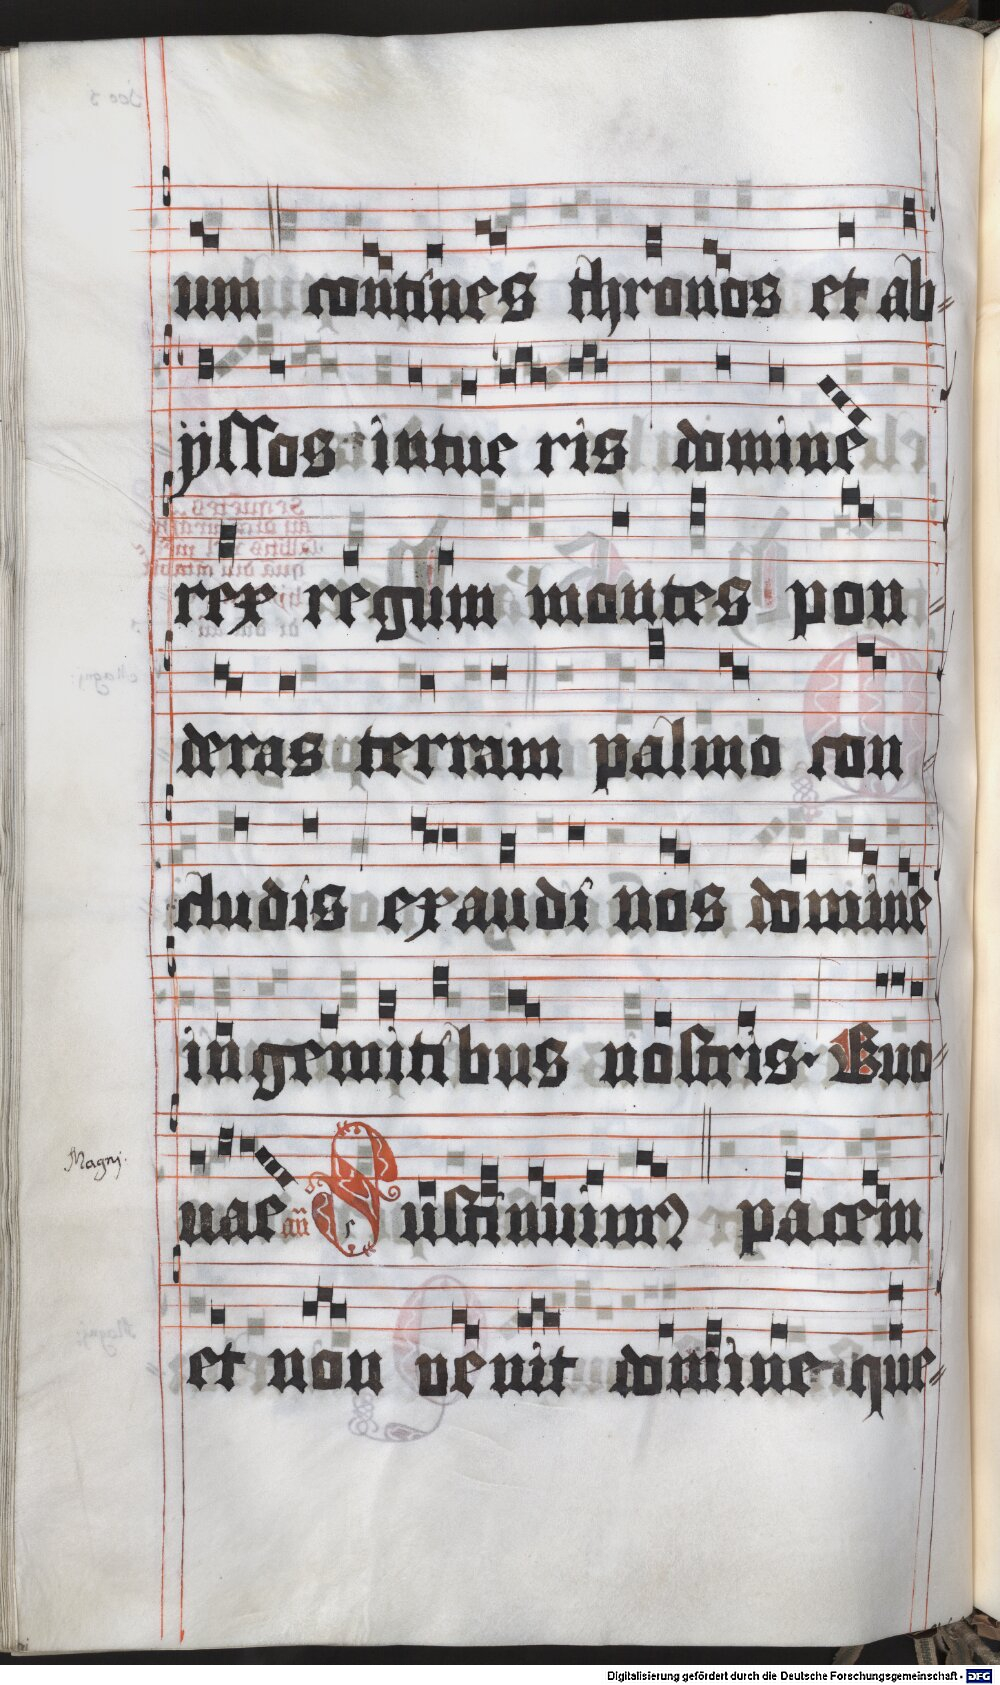 um contines thronos et ab=
yssos intue ris domine
rex regum montes pon=
deras terram palmo con=
cludis exaudi nos domine
in gemitibus nostris. Euo=
uae an Sustinuimꝰ pacem
Magni.
et non venit domine que=
Digitalisierung gefördert durch die Deutsche Forschungsgemeinschaft - DFG